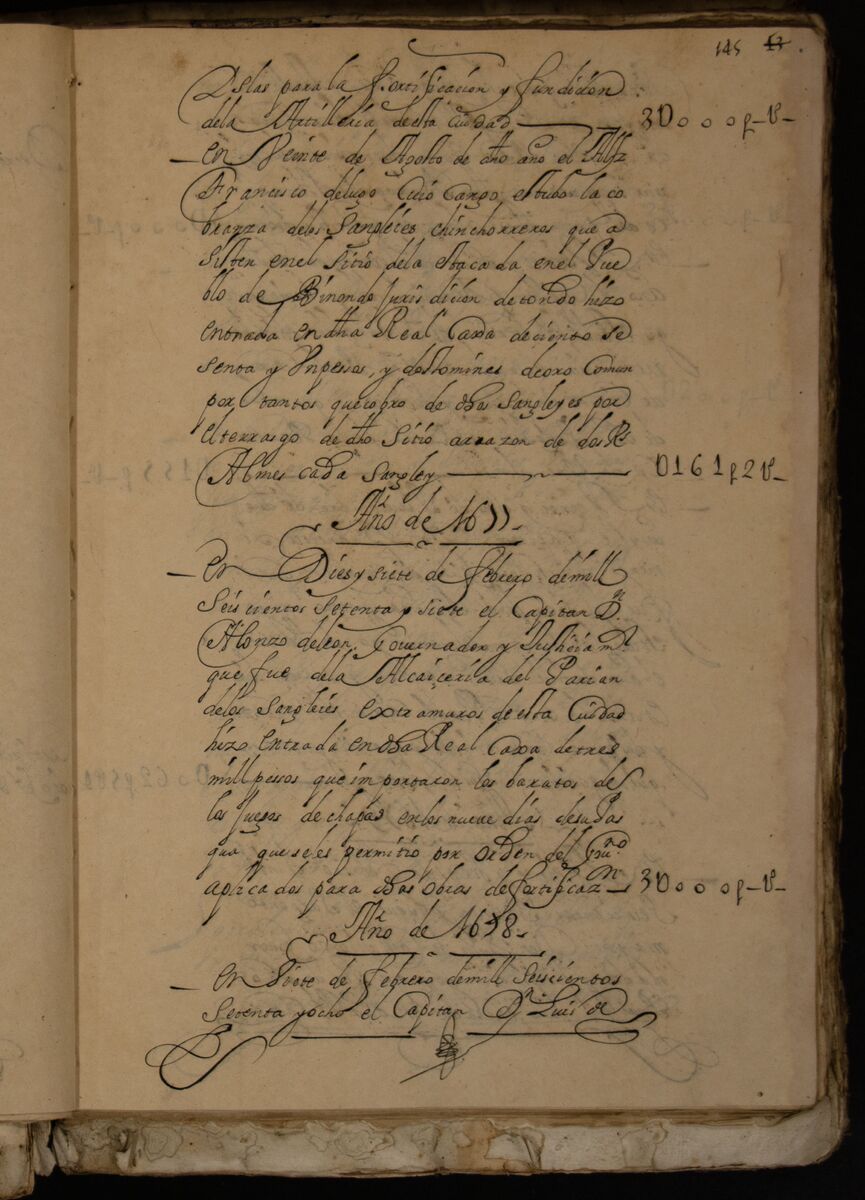 145 53.
Dslas para la fortificacion y fundicion
dela Artilleria de esta Ciudad 3U000p-U-
en Veinte de Agosto de dho año el Alfz
Francisco delugo Cuio Cargo, estubo la co
branza delos Sangleies chinchorreros que a
sisten enel Sitio dela estacada enel Pue
blo de Binondo Juris dicion de tondo hizo
entrada en dha Real Caxa deciento se
senta y Unpessos, y dostomines deoro Comun
por tantos quecobro de dhos Sangleyes por
elterrasgo de dho Sitio arrazon de dos Rs
Almes cada Sangley U161p2U-
Año de 1677-
en Dies y siete de febrero demill
Seis cientos Setenta y siete el Capitan Dn.
Alonzo deleon Governador y Justicia mr
que fue dela Alcaiçeria del Parian
delos Sangleies extramuros de esta Ciudad
hizo entrada en dha Real Caxa detres
mill pessos que importaron los baratos de
los juegos de chapas enlos nueve dias desu Pas
qua que seles permitio por orden del Govno
aplicados para dhas obras de fortificazn 3U000p-U-
Año de 1678-
en Siete de febrero demill Seiscientos
Setenta yocho el Capitan Dn Luis de